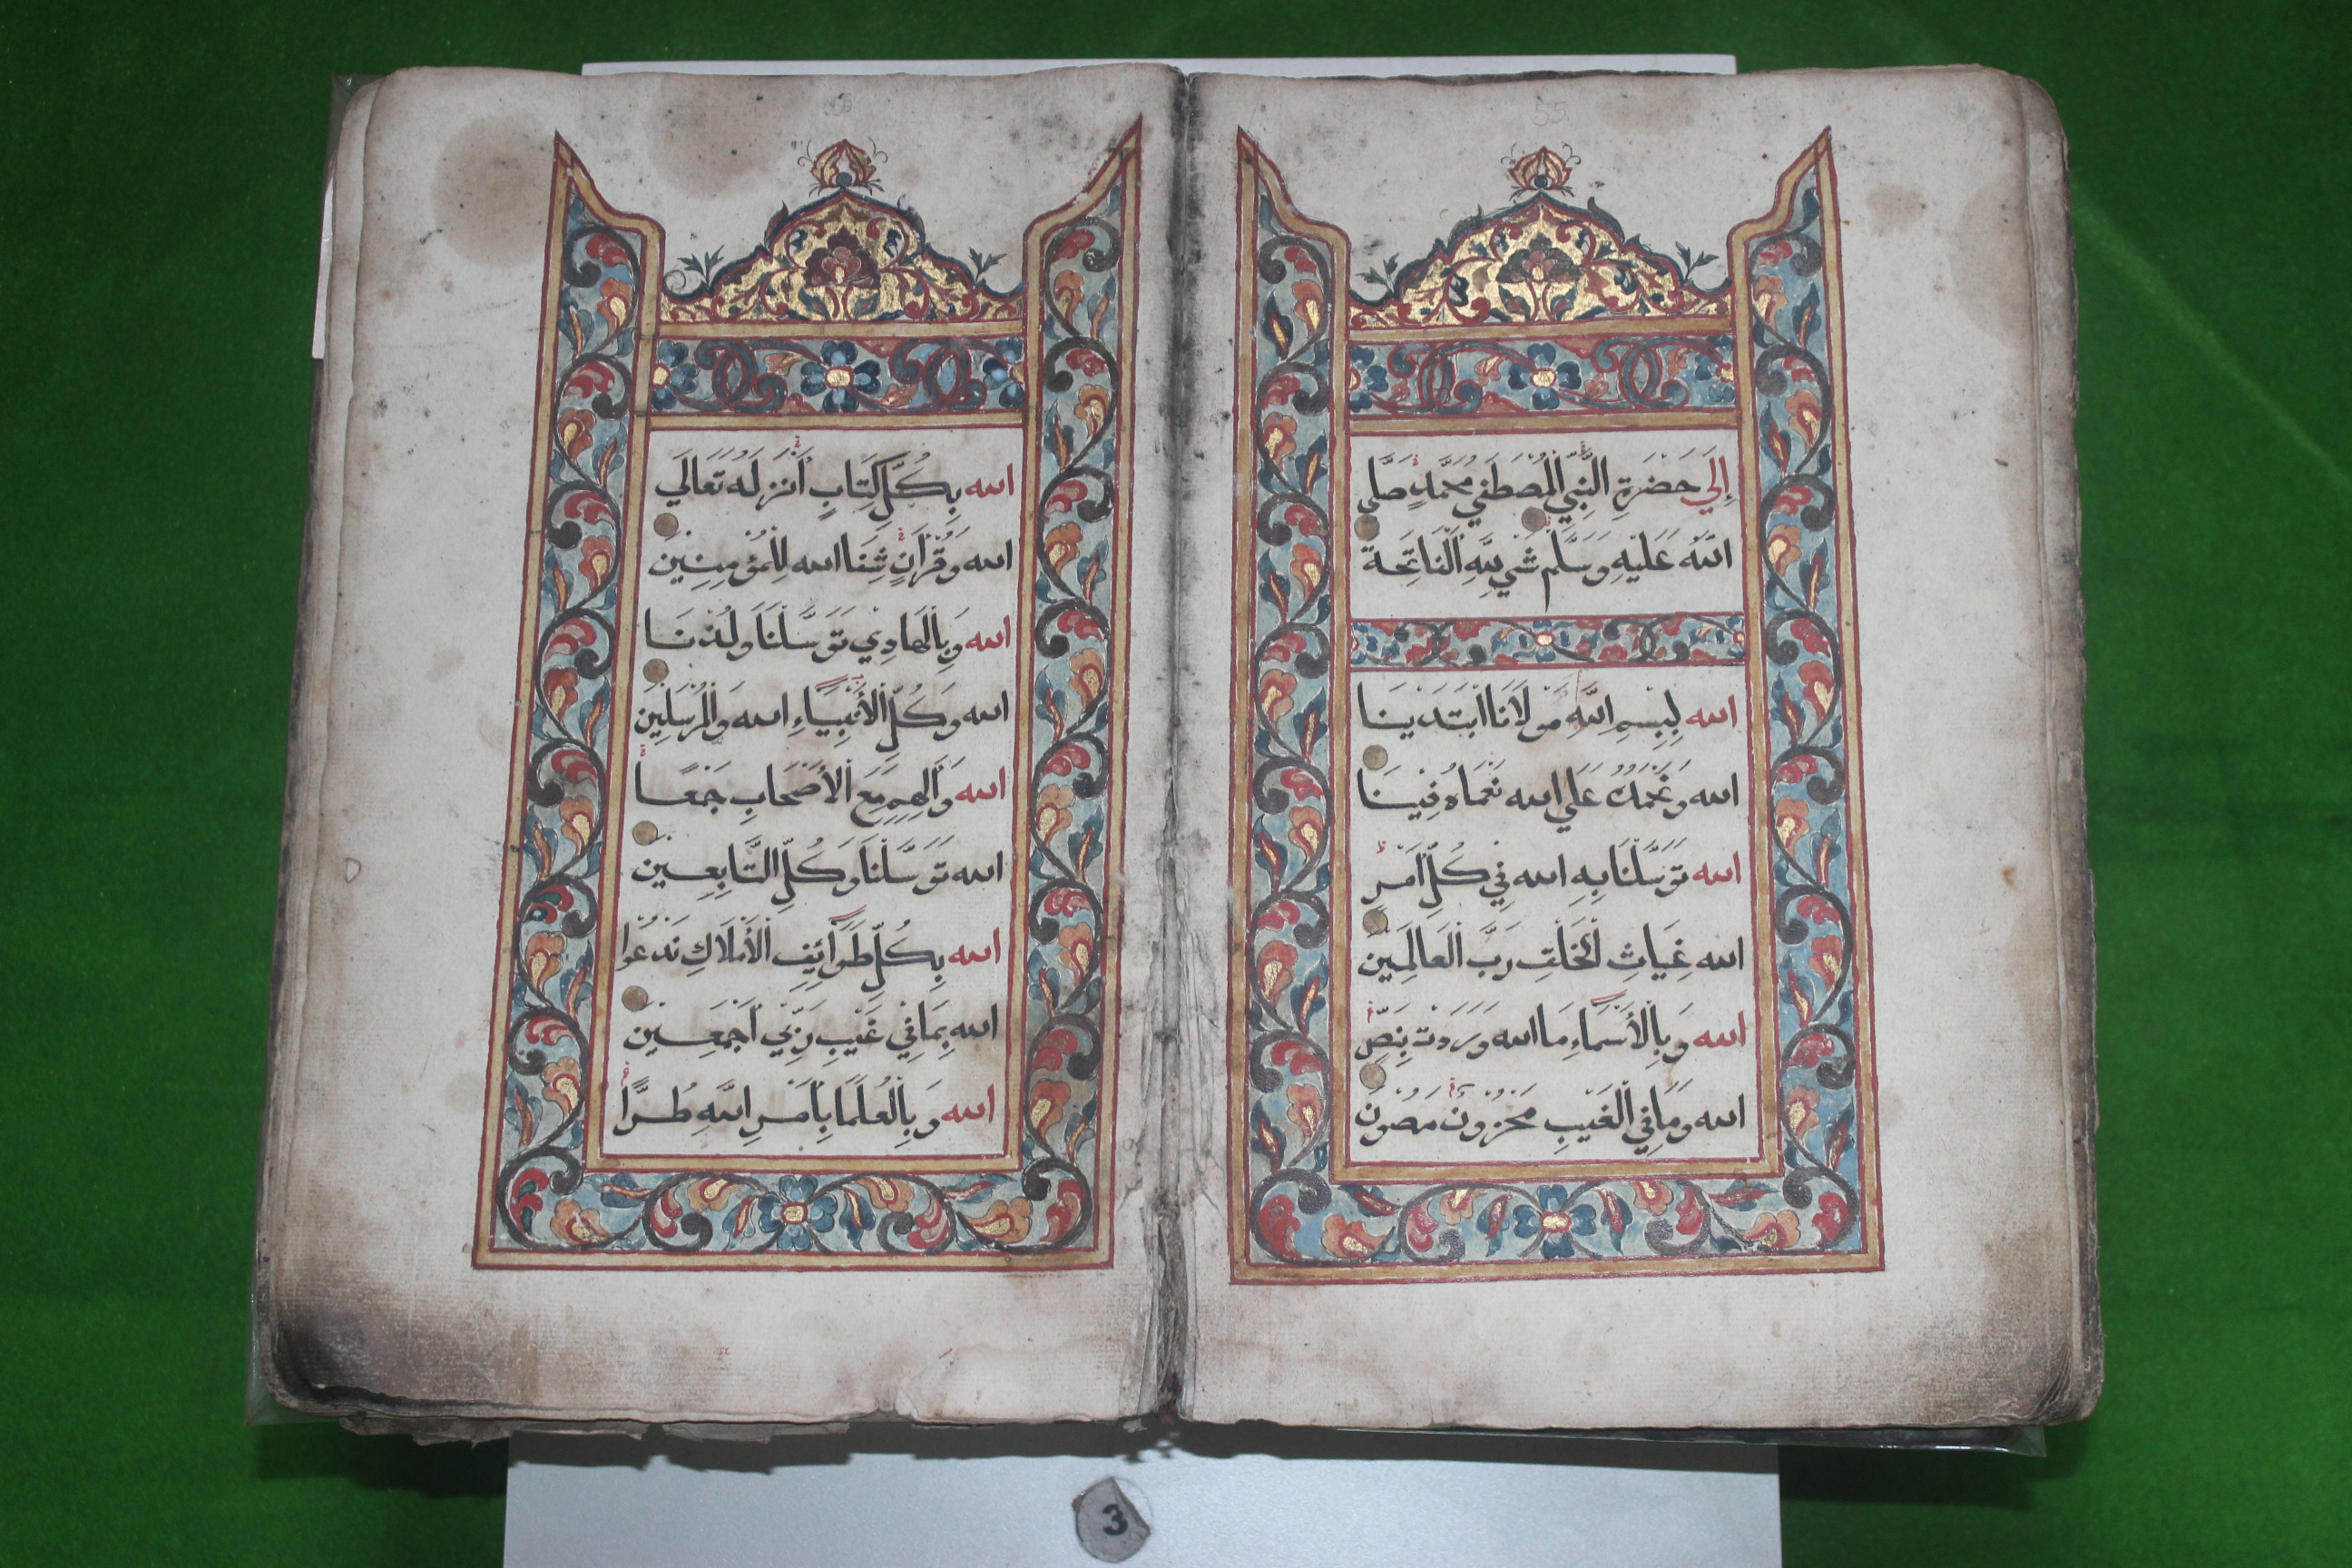 55
إِلَي حَضْرَةِ النَّبِيِّ الْمُصْطَفَي مُحَمَّدٍ صَلَّي
اللهُ عَلَيْهِ وَسَلَّمْ شَيْ لِلَّهِ الْفَاتِحَة
الله بِبِسْمِ اللَّهِ مَوْلَانَا ابْتَدَيْنَا
الله وَنَحْمَدُهُ عَلَي الله نَعْمَاهُ فِينَا
الله تَوَسَّلْنَا بِهِ الله فِي كُلِّ أَمْرٍ
الله غِيَاثِ الْخَلْقِ رَبَّ الْعَالَمِينَ
الله وَبِالْأَسْمَاءِ مَا الله وَرَدَتْ بِنَصٍّ
الله وَمَا فِي الْغَيْبِ مَخْزُونٌ مَصُونَ
الله بِكُلِّ كِتَابٍ أَنْزَلَهُ تَعَالَي
الله وَقُرْآنٍ شِفَا الله لِلْمُؤْمِنِينَ
الله وَبِالْهَادِي تَوَسَّلْنَا وَلُذْنَا
الله وَكُلِّ الْأَنْبِيَاءِ الله وَالْمُرْسَلِينَ
الله وَآلِهِمِ مَعَ الْأَصْحَابِ جَمْعًا
الله تَوَسَّلْنَا وَكُلِّ التَّابِعِينَ
الله بِكُلِّ طَوَائِفِ الْأَمْلَاكِ نَدْعُوا
الله بِمَا فِي غَيْبِ رَبِّي أَجْمَعِينَ
الله وَبِالْعُلَمَا بِأَمْرِ اللَّهِ طُرًّا
3